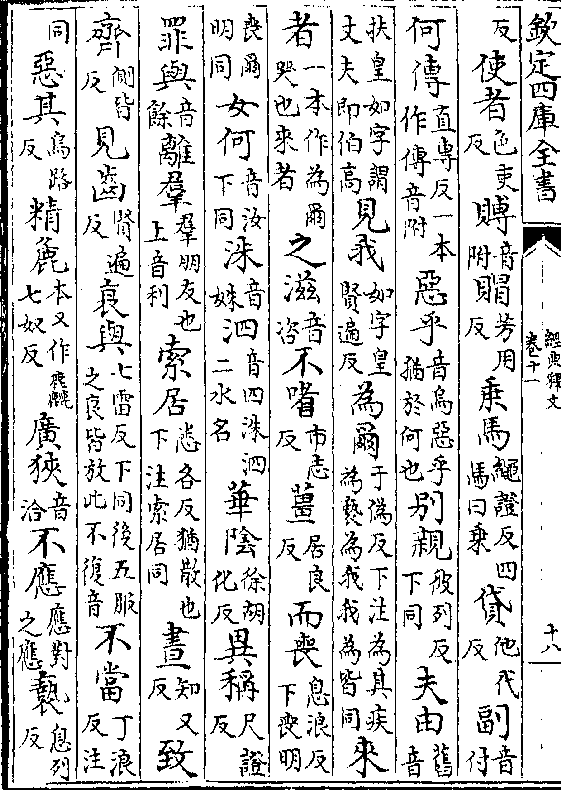 欽定四庫全書
經典釋文
卷十一
十八
反使者色吏反賻音附賵芳用反乘馬繩證反四馬曰乘貸他代反副音付
何傳直專反一本作傅音附惡乎音烏惡乎猶於何也别親彼列反下同夫由舊音
扶皇如字謂丈夫即伯高見我如字皇賢遍反為爾于偽反下注為其疾為褻為我我為皆同來
者一本作為爾哭也來者之滋音咨不嗜市志反薑居良反而喪息浪反下喪明
喪爾明同女何音汝下同洙音姝泗音四洙泗二水名華陰徐胡化反異稱尺證反
罪與音餘離羣羣朋友也上音利索居悉各反猶散也下注索居同晝知又反致
齊側皆反見齒賢遍反衰與七雷反下同後五服之衰皆放此不復音不當丁浪反注
同惡其烏路反精麄本又作麤七奴反廣狹音洽不應應對之應褻息列反